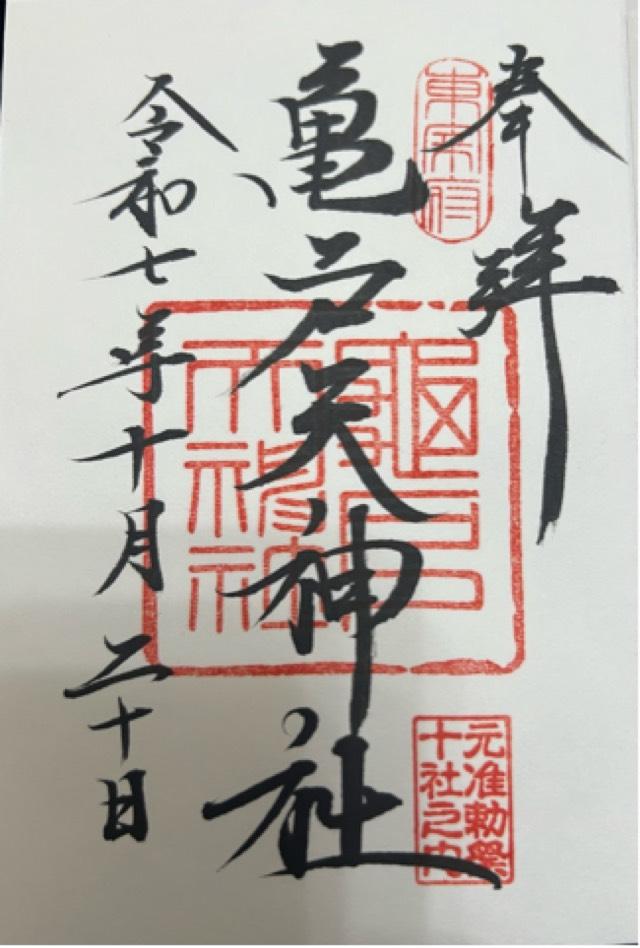 奉拝
東宰府
亀戸天神社
亀戸天神社
元准勅祭
十社之内
令和七年十月二十日